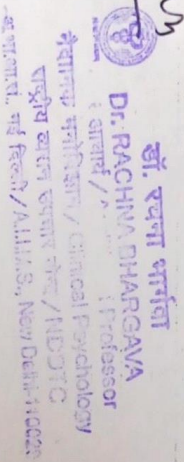 डॉ. रचना भार्गवा
Dr. RACHNA BHARGAVA
आचार्य / Professor
नैदानिक मनोविज्ञान / Clinical Psychology
राष्ट्रीय व्यसन उपचार केन्द्र / NDDTC
अ.भा.आ.सं., नई दिल्ली / A.I.I.M.S., New Delhi-110029